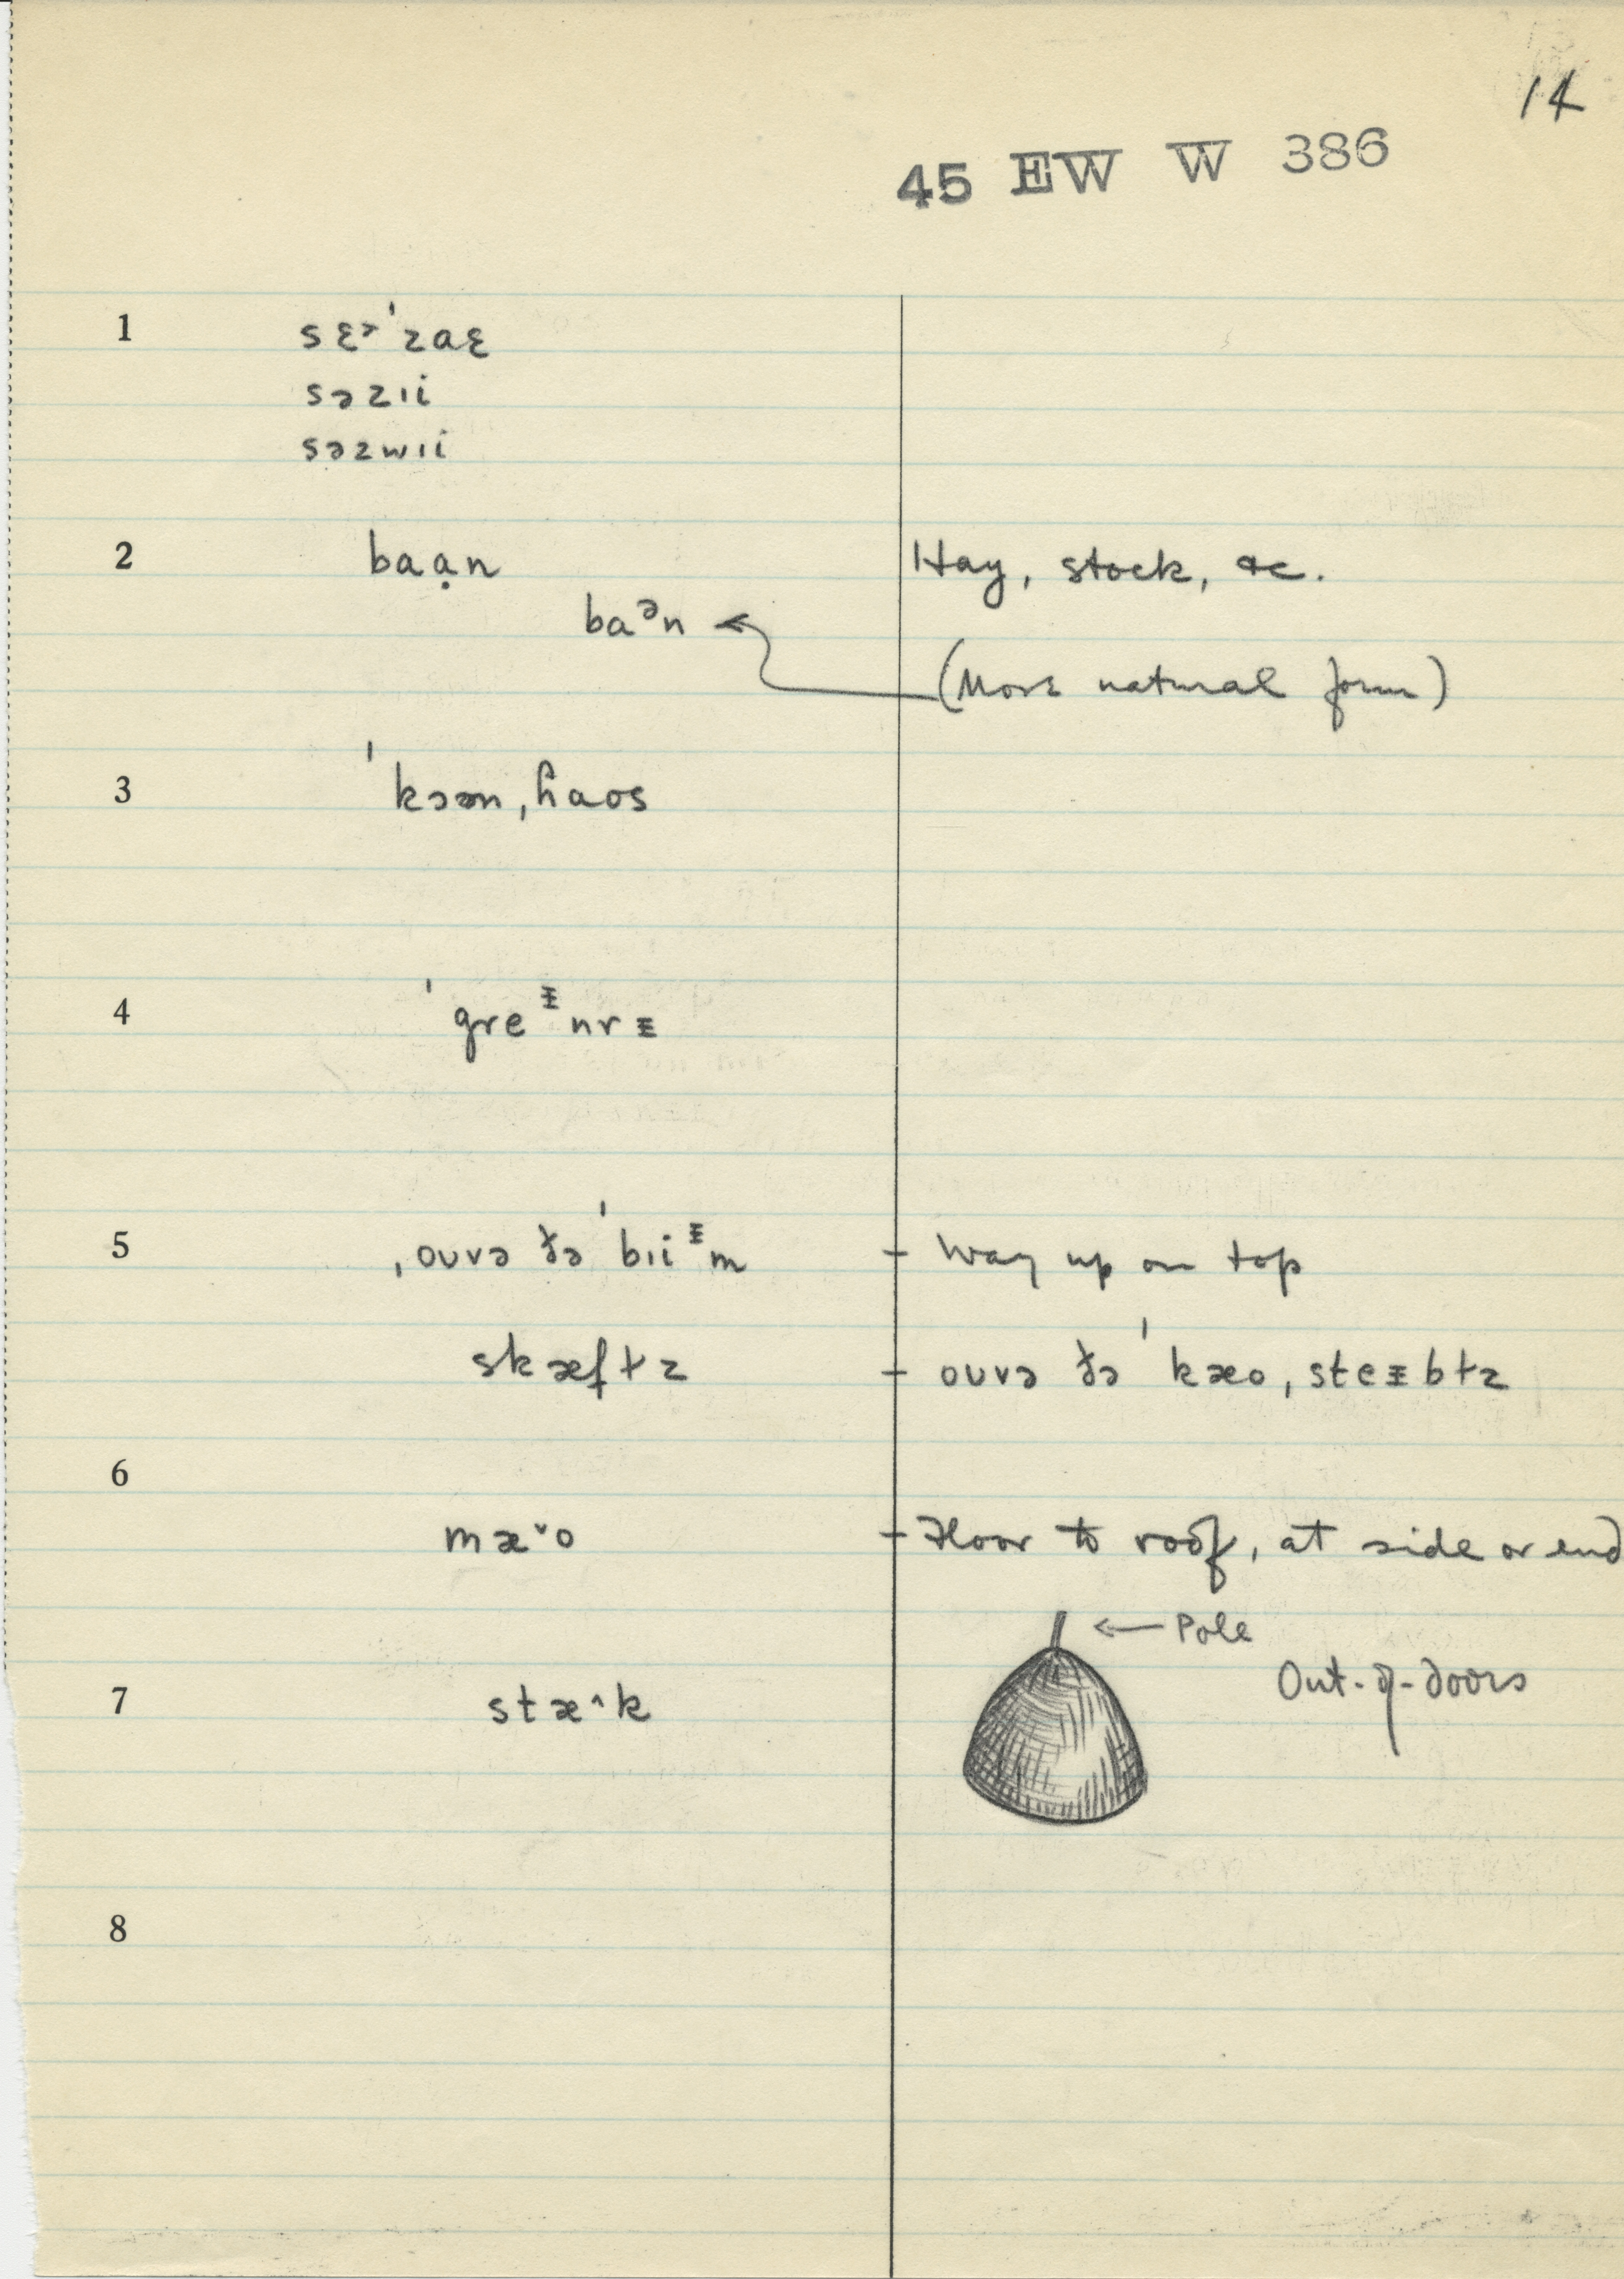 14
45 EW W 386
1 sɛɚˈzaɛ
səzɪi
səzwɪi
2 baạn Hay, stock, &c.
baᵊn
(More natural form)
3 ˈkɔən ˌɦaos
4 ˈgreᵻnrᵻ
5 ˌouvə ðə ˈbɪiᵻm - Way up on top
skæfɫz - ouvə ðə ˈkæo ˌsteᵻbɫz
6
mæ˅o - Floor to roof, at side or end
← Pole
Out-of-doors
7 stæ^k
8